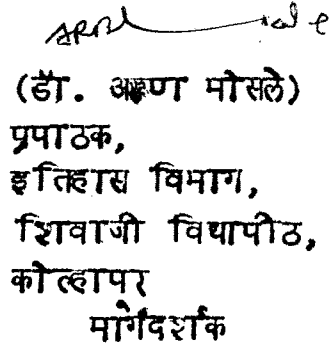 (डॉ. अरूण भोसले)
प्रपाठक,
इतिहास विभाग,
शिवाजी विद्यापीठ,
कोल्हापर
मार्गदर्शक